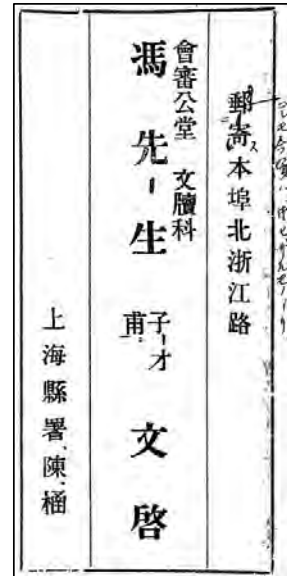 郵寄本埠北浙江路
會審公堂 文牘科
馮先生 子才甫 文啓
上海縣署陳